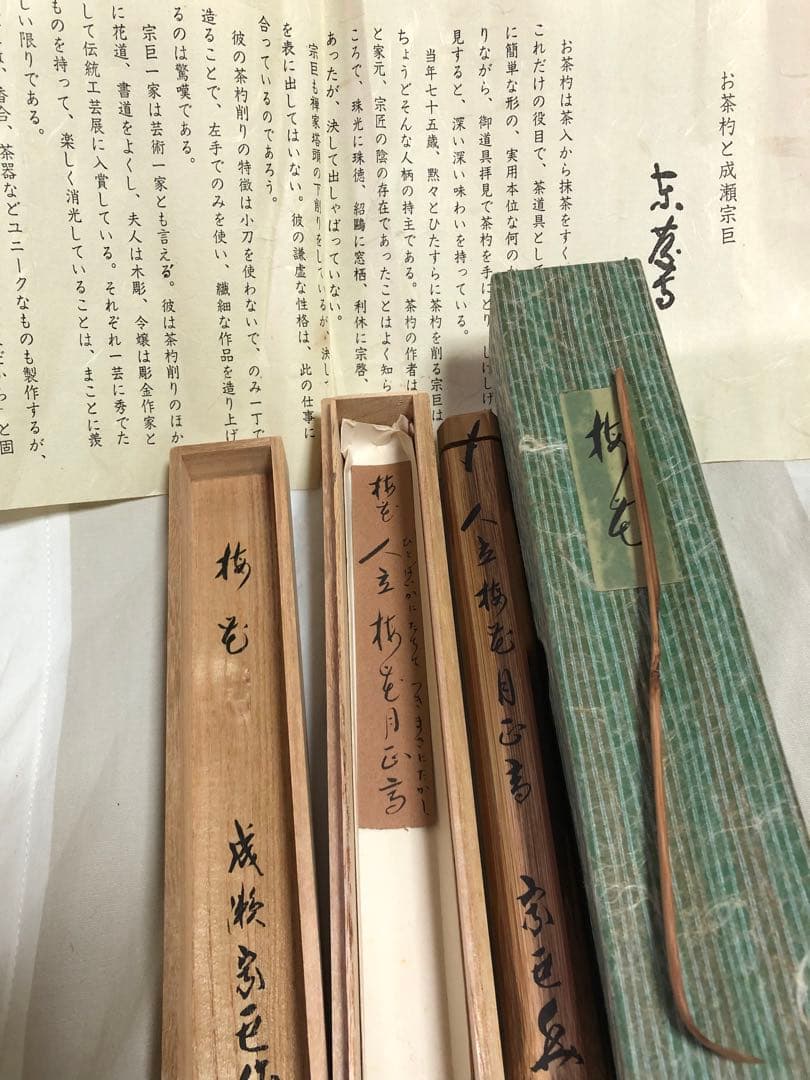 お茶杓と成瀬宗巨
お茶杓は茶入から抹茶をすく
これだけの役目で、茶道具として
に簡単な形の、実用本位な何の
りながら、御道具拝見で茶杓を手にとり、しげしげ
見すると、深い深い味わいを持っている。
当年七十五歳、黙々とひたすらに茶杓を削る宗巨は
ちょうどそんな人柄の持主である。茶杓の作者は
と家元、宗匠の陰の存在であったことはよく知ら
ころで、珠光に珠徳、紹鷗に窓栖、利休に宗啓、
あったが、決して出しゃばっていない。
宗巨も禅家塔頭の下削りをしているが、決して
を表に出してはいない。彼の謙虚な性格は、此の仕事に
合っているのであろう。
彼の茶杓削りの特徴は小刀を使わないで、のみ一丁で
造ることで、左手でのみを使い、繊細な作品を造り上げ
るのは驚嘆である。
宗巨一家は芸術一家とも言える。彼は茶杓削りのほか
に花道、書道をよくし、夫人は木彫、令嬢は彫金作家と
して伝統工芸展に入賞している。それぞれ一芸に秀でた
ものを持って、楽しく消光していることは、まことに羨
しい限りである。
香合、茶器などユニークなものも製作するが、
と個
梅花
成瀬宗巨作
梅花
人立梅花月正高
ひとはいかにたちて つきまさにたかし
人立梅花月正高
宗巨
梅花